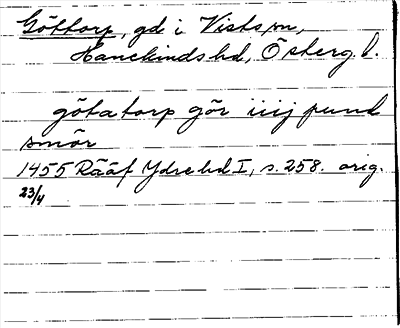 Göttorp, gd i Vists sn,
Hanekinds hd, Östergl.
götatorp gör iiij pund
smör
1455 Rääf Ydre hd I, s. 258. orig.
23/4